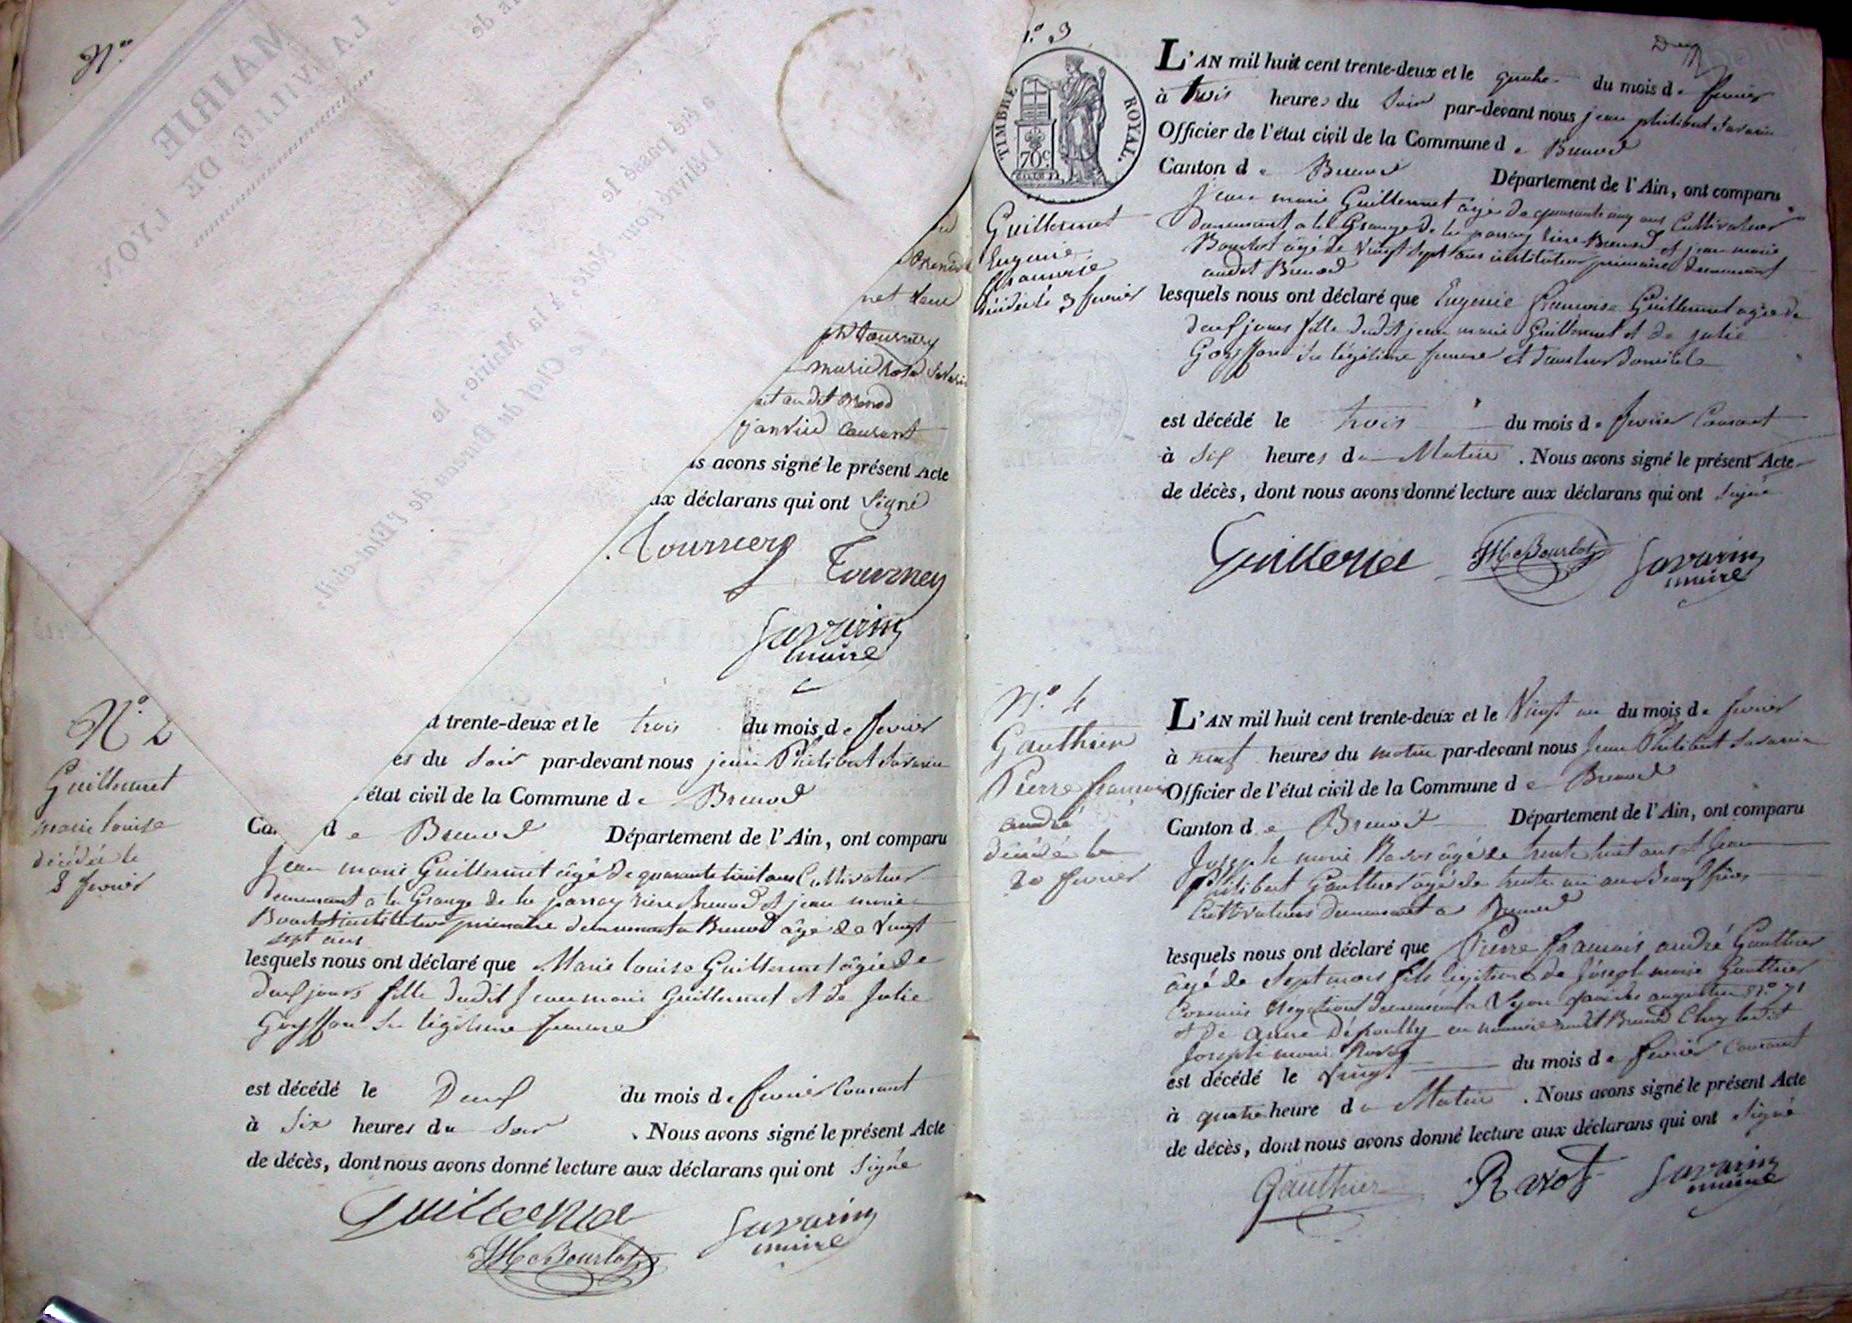 N°
MAIRIE
DE LA VILLE DE LYON
a été passé le
Délivré pour Note, à la Mairie, le
Le Chef du Bureau de l'Etat-civil,
marie Rose Savarin
audit Brénod
janvier courant
avons signé le présent Acte
aux déclarans qui ont Signé
Tournery
Tournery
Savarin
maire
N° 2
Guillermet
marie louise
décédée le
2 fevrier
trente-deux et le trois du mois de fevrier
du Soir par-devant nous jean Philibert Savarin
état civil de la Commune de Brenod
Canton de Brenod Département de l'Ain, ont comparu
Jean marie Guillermet âgé de quarante huit ans Cultivateur
demeurant a la Grange de la parray rière Brenod et jean marie
Bourlot instituteur primaire demeurant a Brenod âgé de Vingt
sept ans
lesquels nous ont déclaré que Marie louise Guillermet âgée de
deux jours fille dudit Jean marie Guillermet et de Julie
Goyffon Sa légitime femme
est décédé le Deux du mois de fevrier Courant
à Six heures du Soir . Nous avons signé le présent Acte
de décès, dont nous avons donné lecture aux déclarans qui ont Signé
Guillermet
JM Bourlot
Savarin
maire
N° 3
TIMBRE ROYAL.
70 c.
Guillermet
Eugenie
françoise
décédée le 3 fevrier
L'AN mil huit cent trente-deux et le quatre du mois de fevrier
à trois heures du Soir par-devant nous jean philibert Savarin
Officier de l'état civil de la Commune de Brenod
Canton de Brenod Département de l'Ain, ont comparu
Jean marie Guillermet âgé de quarante cinq ans Cultivateur
demeurant a la Grange de la parray rière Brenod et jean marie
Bourlot âgé de Vingt Sept ans instituteur primaire demeurant
audit Brenod
lesquels nous ont déclaré que Eugenie françoise Guillermet agée de
deux jours fille dudit jean marie Guillermet et de julie
Goyffon Sa légitime femme et dans leur Domicile
est décédé le trois du mois de fevrier Courant
à Six heures du Matin . Nous avons signé le présent Acte
de décès, dont nous avons donné lecture aux déclarans qui ont Signé
Guillermet
JM Bourlot
Savarin
maire
N° 4
Gauthier
Pierre françois
andré
décédé le
20 fevrier
L'AN mil huit cent trente-deux et le Vingt un du mois de fevrier
à neuf heures du matin par-devant nous Jean Philibert Savarin
Officier de l'état civil de la Commune de Brenod
Canton de Brenod Département de l'Ain, ont comparu
Joseph marie Ravot âgé de trente huit ans et Jean
Philibert Gauthier âgé de trente un ans Beaux frères
Cultivateurs Demeurant a Brenod
lesquels nous ont déclaré que Pierre françois andré Gauthier
âgé de Sept mois fils légitime de Joseph marie Gauthier
Commis Négotiant demeurant a Lyon quai des augustins N° 71
et de anne Dépoully en nourrice audit Brenod Chez ledit
Joseph marie Ravot
est décédé le Vingt du mois de fevrier Courant
à quatre heure du Matin . Nous avons signé le présent Acte
de décès, dont nous avons donné lecture aux déclarans qui ont Signé
Gauthier
Ravot
Savarin
maire